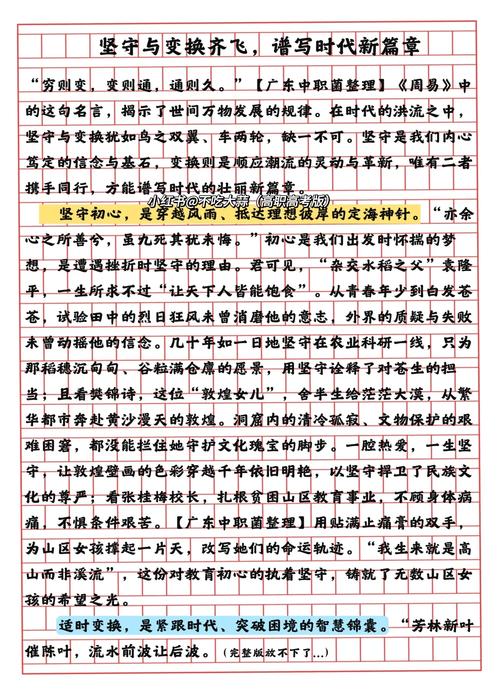 坚守与变换齐飞，谱写时代新篇章
“穷则变，变则通，通则久。”【广东中职菌整理】《周易》中
的这句名言，揭示了世间万物发展的规律。在时代的洪流之中，
坚守与变换犹如鸟之双翼、车两轮，缺一不可。坚守是我们内心
笃定的信念与基石，变换则是顺应潮流的灵动与革新，唯有二者
携手同行，才能谱写时代的壮丽新篇章。
小红书@不吃大蒜（高职高考版）
坚守初心，是穿越风雨、抵达理想彼岸的定海神针。“亦余
心之所善兮，虽九死其犹未悔。”初心是我们出发时怀揣的梦
想，是遭遇挫折时坚守的理由。君可见，“杂交水稻之父”袁隆
平，一生所求不过“让天下人皆能饱食”。从青春年少到白发苍
苍，试验田中的烈日狂风未曾消磨他的意志，外界的质疑与失败
未曾动摇他的信念。几十年如一日地坚守在农业科研一线，只为
那稻穗沉甸甸、谷粒满仓廪的愿景，用坚守诠释了对苍生的担
当；且看樊锦诗，这位“敦煌女儿”，舍半生给茫茫大漠，从繁
华都市奔赴黄沙漫天的敦煌。洞窟内的清冷孤寂、文物保护的艰
难困窘，都没能拦住她守护文化瑰宝的脚步。一腔热爱，一生坚
守，让敦煌壁画的色彩穿越千年依旧明艳，以坚守捍卫了民族文
化的尊严；看张桂梅校长，扎根贫困山区教育事业，不顾身体病
痛，不惧条件艰苦。【广东中职菌整理】用贴满止痛膏的双手，
为山区女孩撑起一片天，改写她们的命运轨迹。“我生来就是高
山而非溪流”，这份对教育初心的执着坚守，铸就了无数山区女
孩的希望之光。
适时变换，是紧跟时代、突破困境的智慧锦囊。“芳林新叶
催陈叶，流水前波让后波。（完整版放不下了...）